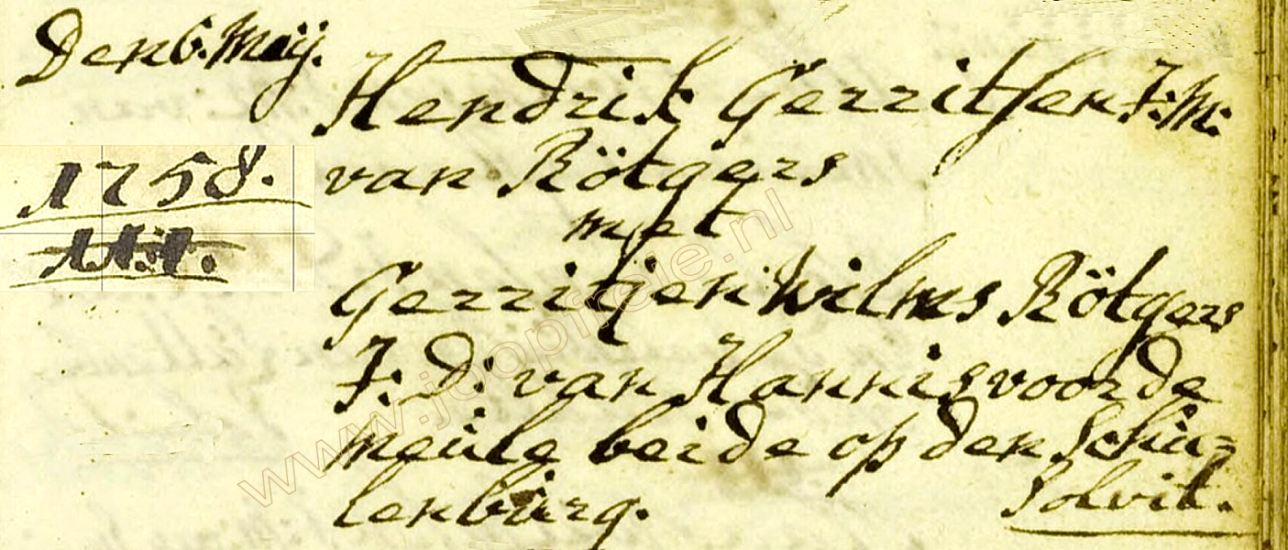 Den 6. Meij.
1758.
Hendrik Gerritsen J: M:
van Rötgers
met
Gerritjen Wilms Rötgers
J: D: van Hannisvoorde
meule beide op den Schu=
lenbürg. Solvit.
www.joopfreie.nl